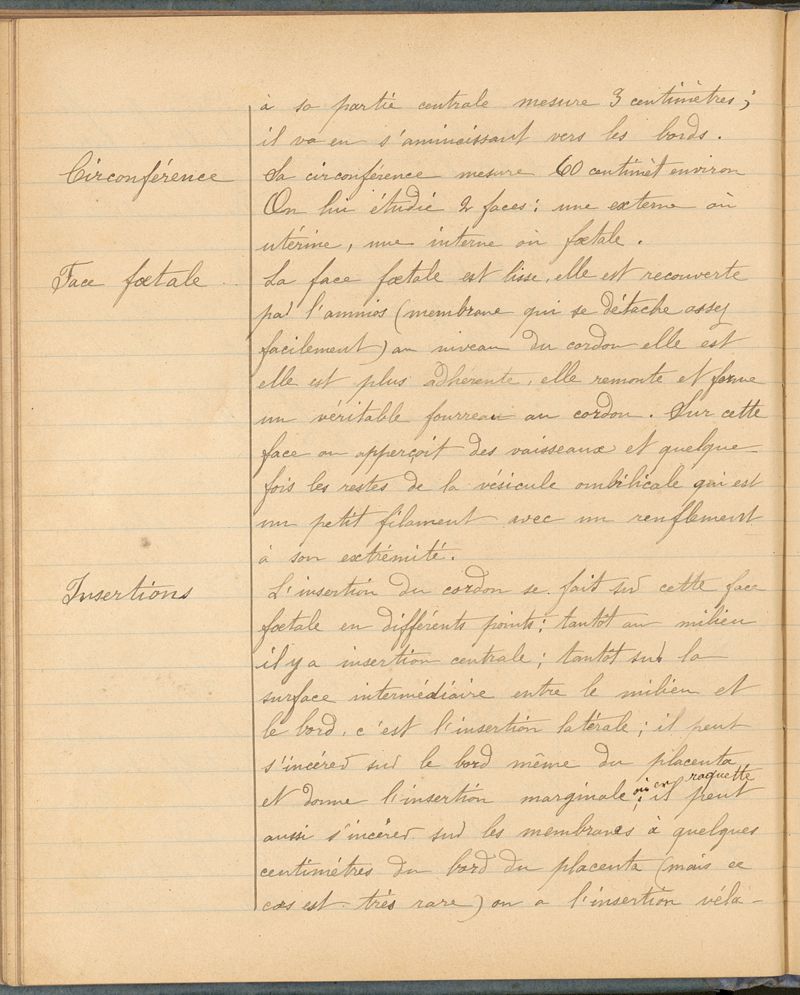 à sa partie centrale mesure 3 centimètres;
il va en s'amincissant vers les bords.
Circonférence
Sa circonférence mesure 60 centimèt environ
On lui étudie 2 faces: une externe ou
utérine, une interne ou fœtale.
Face fœtale
La face fœtale est lisse, elle est recouverte
par l'amnios (membrane qui se détache assez
facilement) au niveau du cordon elle est
elle est plus adhérente, elle remonte et forme
un véritable fourreau au cordon. Sur cette
face on apperçoit des vaisseaux et quelque-
fois les restes de la vésicule ombilicale qui est
un petit filament avec un renflement
à son extrémité.
Insertions
L'insertion du cordon se fait sur cette face
fœtale en différents points: tantôt au milieu
il y a insertion centrale; tantôt sur la
surface intermédiaire entre le milieu et
le bord, c'est l'insertion latérale; il peut
s'incérer sur le bord même du placenta
et donne l'insertion marginale ou en raquette; il peut
aussi s'incérer sur les membranes à quelques
centimètres du bord du placenta (mais ce
cas est très rare) on a l'insertion véla-